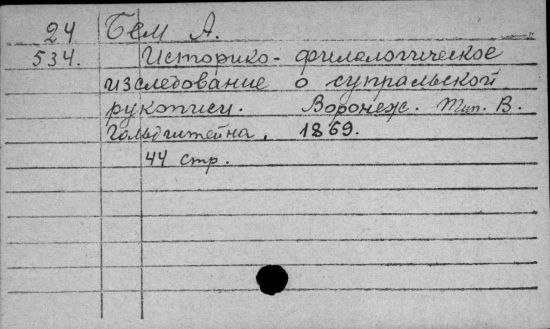 24 Бем А.
534. Историко-филологическое
изследование о супральской
рукописи. Воронеж. Тип. В.
Гольдштейна, 1869.
44 стр.